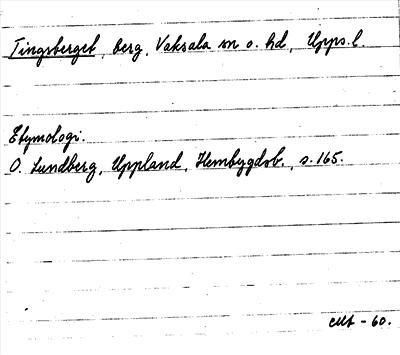 Tingsberget, berg, Vaksala sn o. hd, Upps. l.
Etymologi.
O. Lundberg, Uppland, Hembygdsb., s. 165.
- 60.